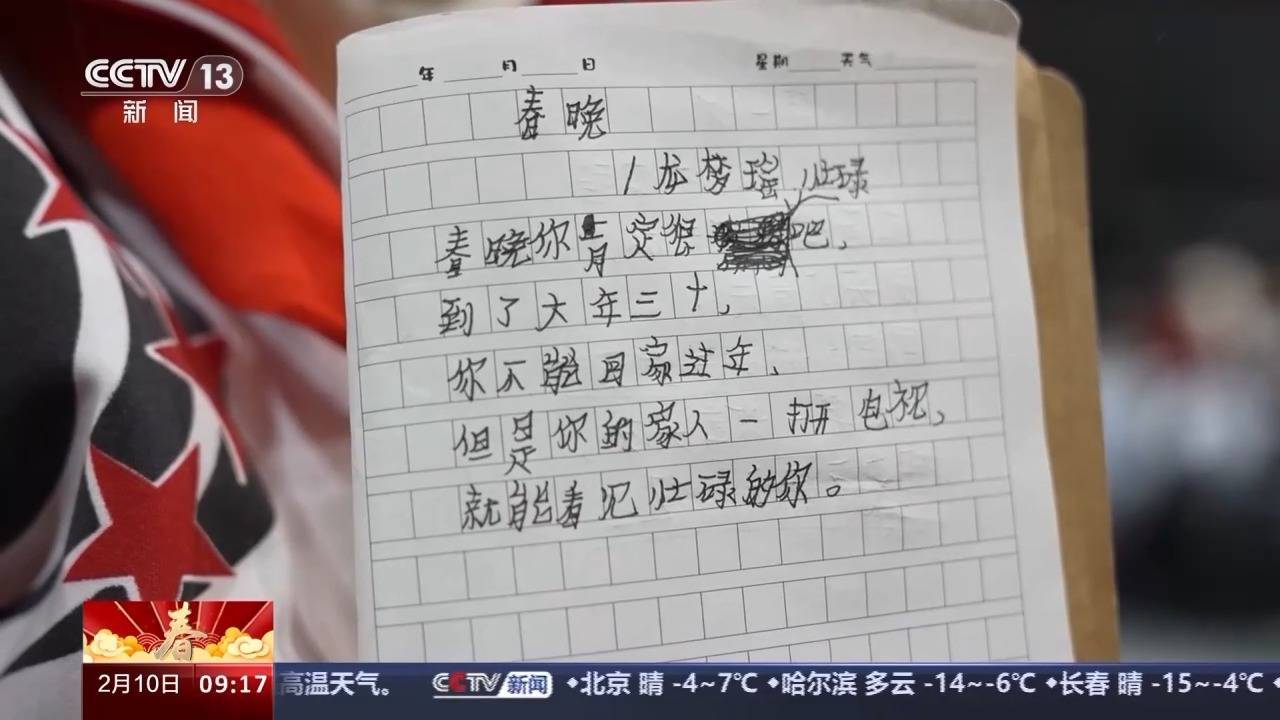 CCTV 13
新闻
年 月 日 星期 天气
春晚
/龙梦瑶
忙碌
春晚你肯定很 吧,
到了大年三十,
你不能回家过年,
但是你的家人一打开电视,
就能看见忙碌的你。
春
2月10日 09:17
高温天气。 CCTV 新闻 ◆北京 晴 -4~7℃ ◆哈尔滨 多云 -14~-6℃ ◆长春 晴 -15~-4℃